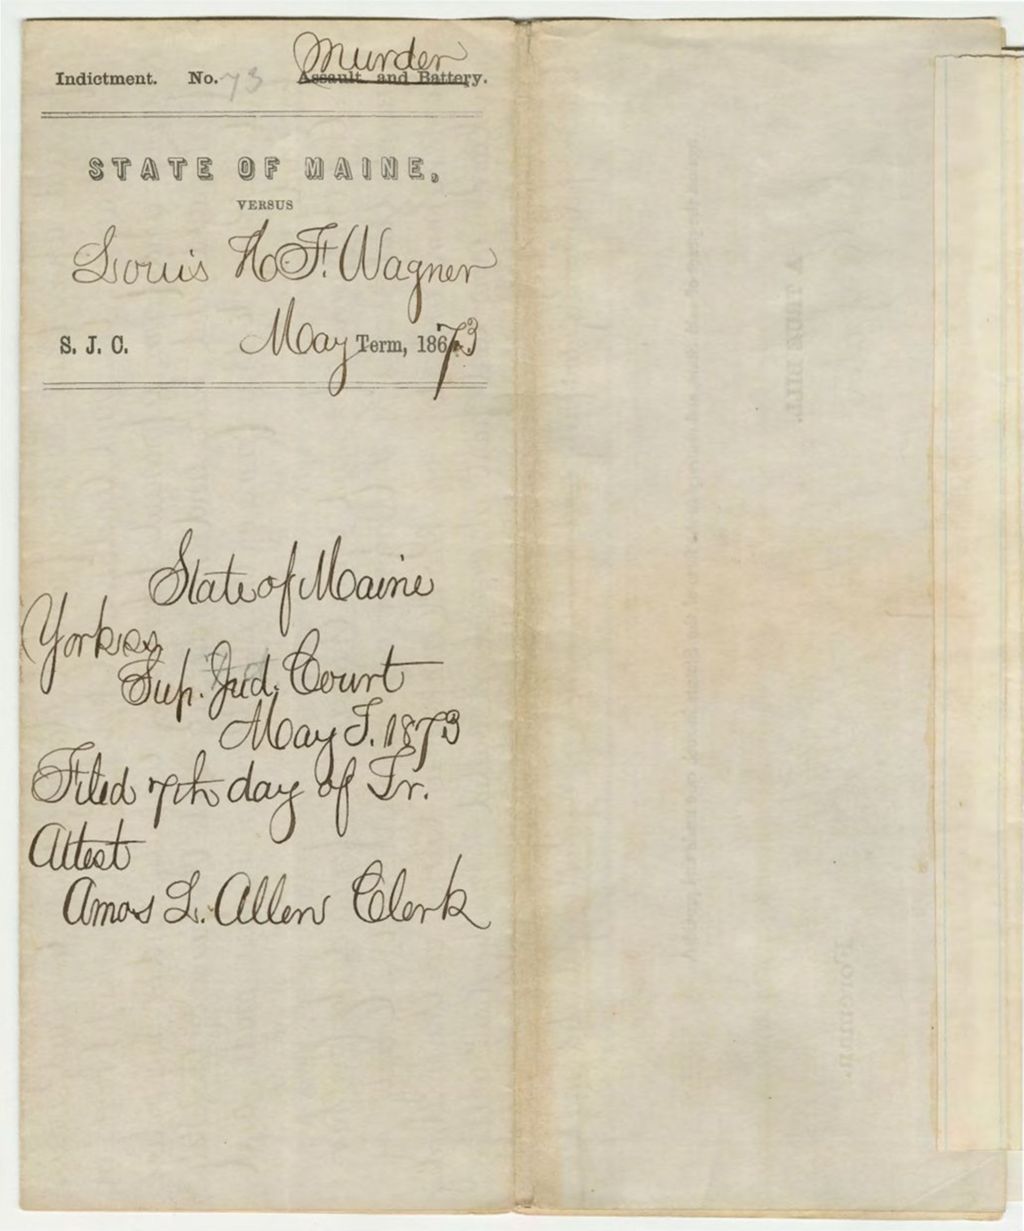 Murder
Indictment. No. 73 Assault and Battery.
STATE OF MAINE,
VERSUS
Louis H. F. Wagner
S. J. C. May Term, 1873
State of Maine
York ss
Sup. Jud. Court
May T. 1873
Filed 7th day of Tr.
Attest
Amos L. Allen Clerk
A TRUE BILL.
Foreman.